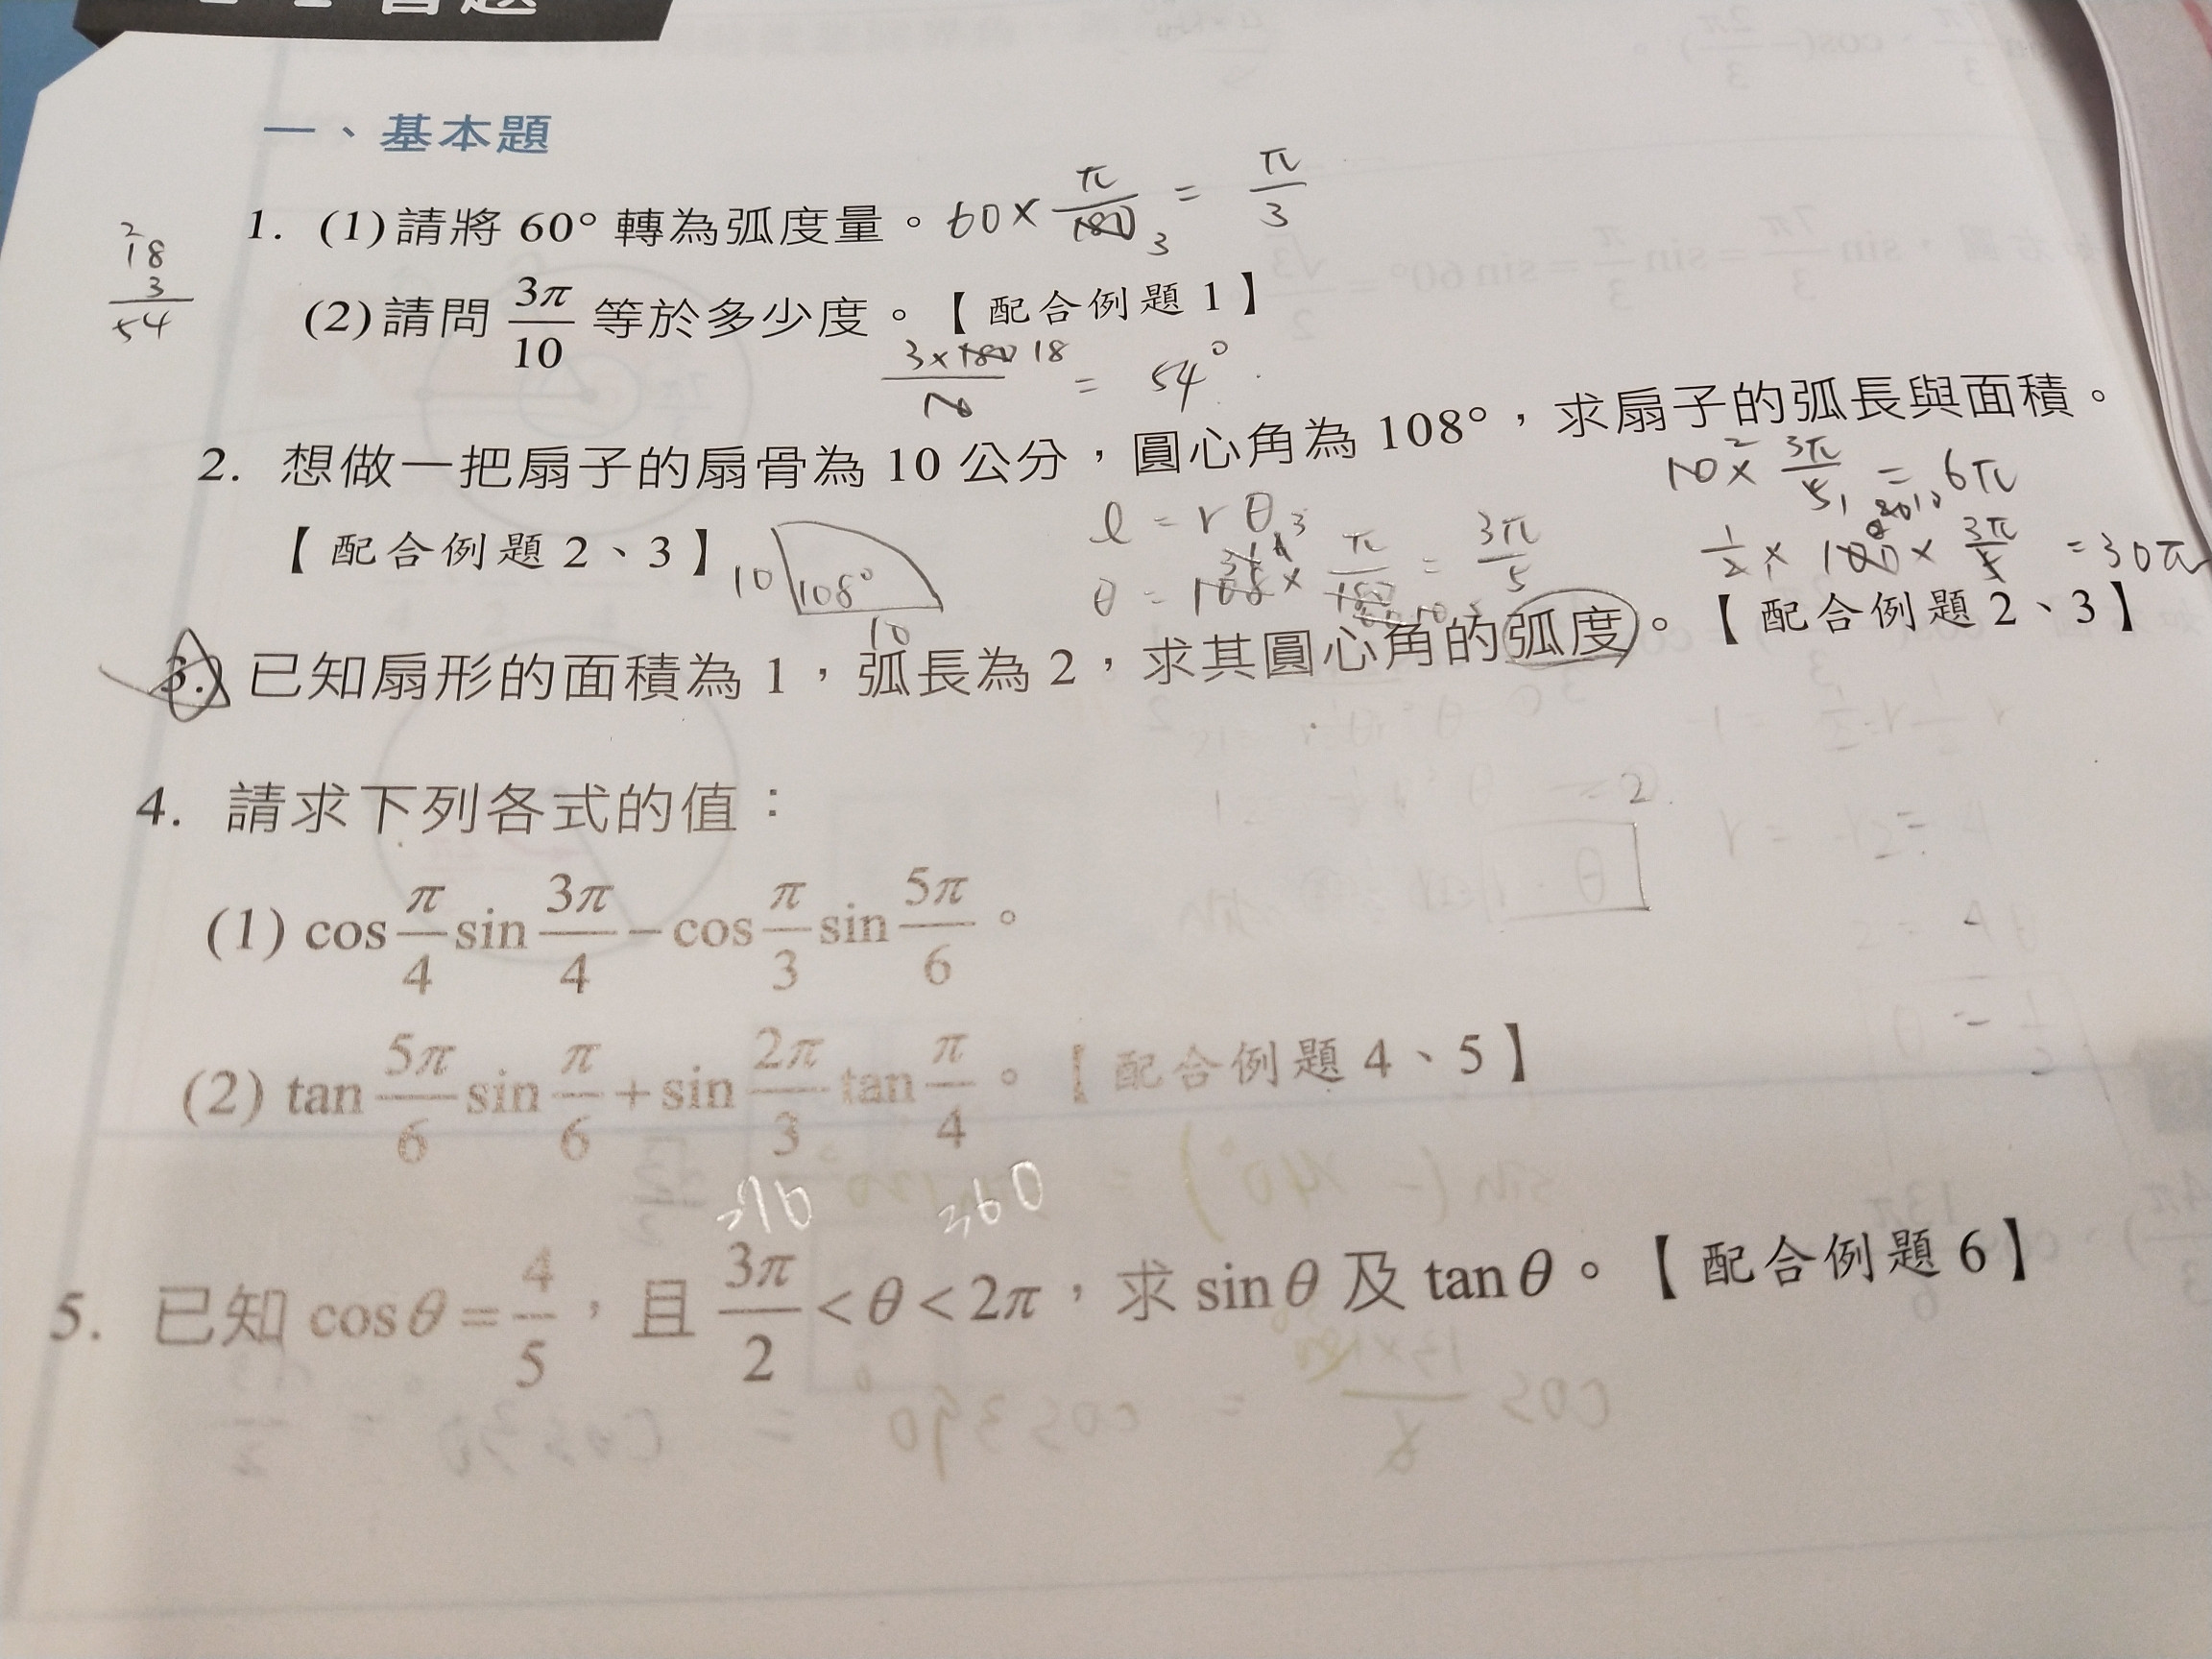 習題
一、基本題
1. (1)請將 60° 轉為弧度量。 60 × π/180 3 = π/3
18
3
54
(2)請問 3π/10 等於多少度。【配合例題 1】
3×180 18 / 10 = 54°
2. 想做一把扇子的扇骨為 10 公分，圓心角為 108°，求扇子的弧長與面積。
10 × 3π/5 = 6π
【配合例題 2、3】 10 108° 10
l = rθ
θ = 108 × π/180 = 3π/5
1/2 × 100 × 3π/5 = 30π
3. 已知扇形的面積為 1，弧長為 2，求其圓心角的弧度。【配合例題 2、3】
4. 請求下列各式的值：
2
(1) cos π/4 sin 3π/4 − cos π/3 sin 5π/6。
(2) tan 5π/6 sin π/6 + sin 2π/3 tan π/4。【配合例題 4、5】
360
5. 已知 cosθ = 4/5，且 3π/2 < θ < 2π，求 sinθ 及 tanθ。【配合例題 6】